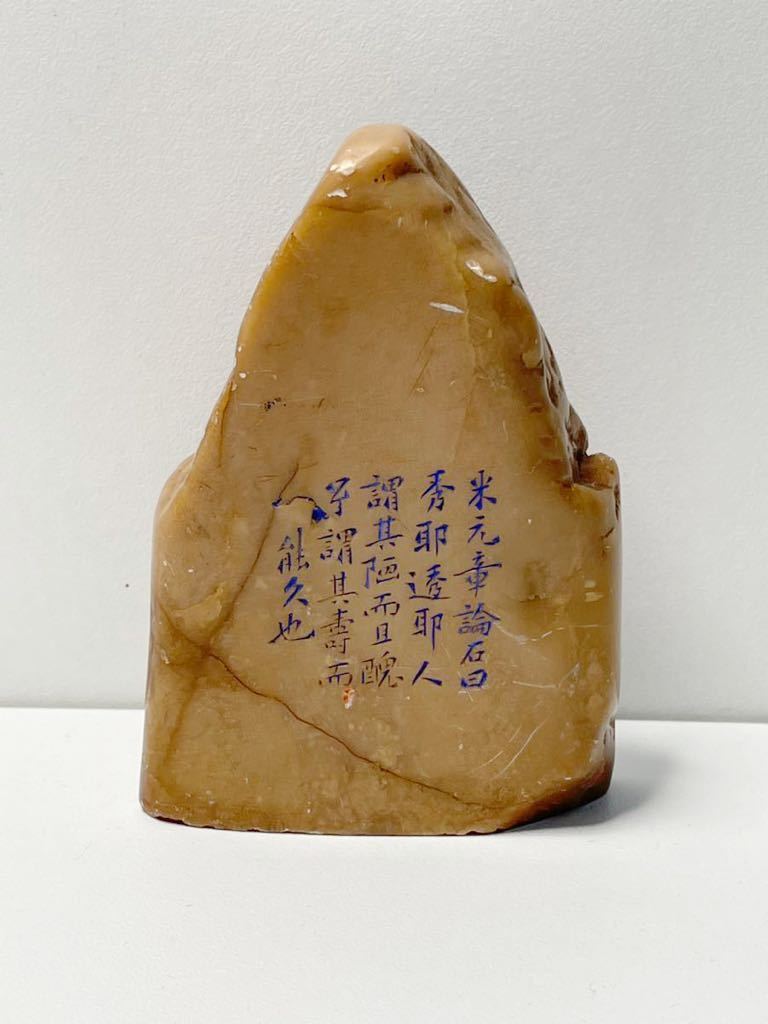 米元章論石曰
秀耶透耶人
謂其陋而且醜
予謂其壽而
能久也